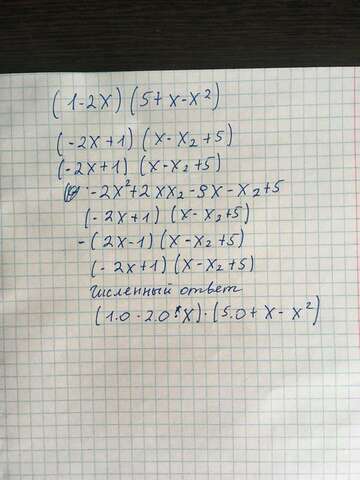 (1-2x)(5+x-x²)
(-2x+1)(x-x₂+5)
(-2x+1)(x-x₂+5)
-2x²+2xx₂-9x-x₂+5
(-2x+1)(x-x₂+5)
-(2x-1)(x-x₂+5)
(-2x+1)(x-x₂+5)
Численный ответ
(1.0-2.0*x)·(5.0+x-x²)